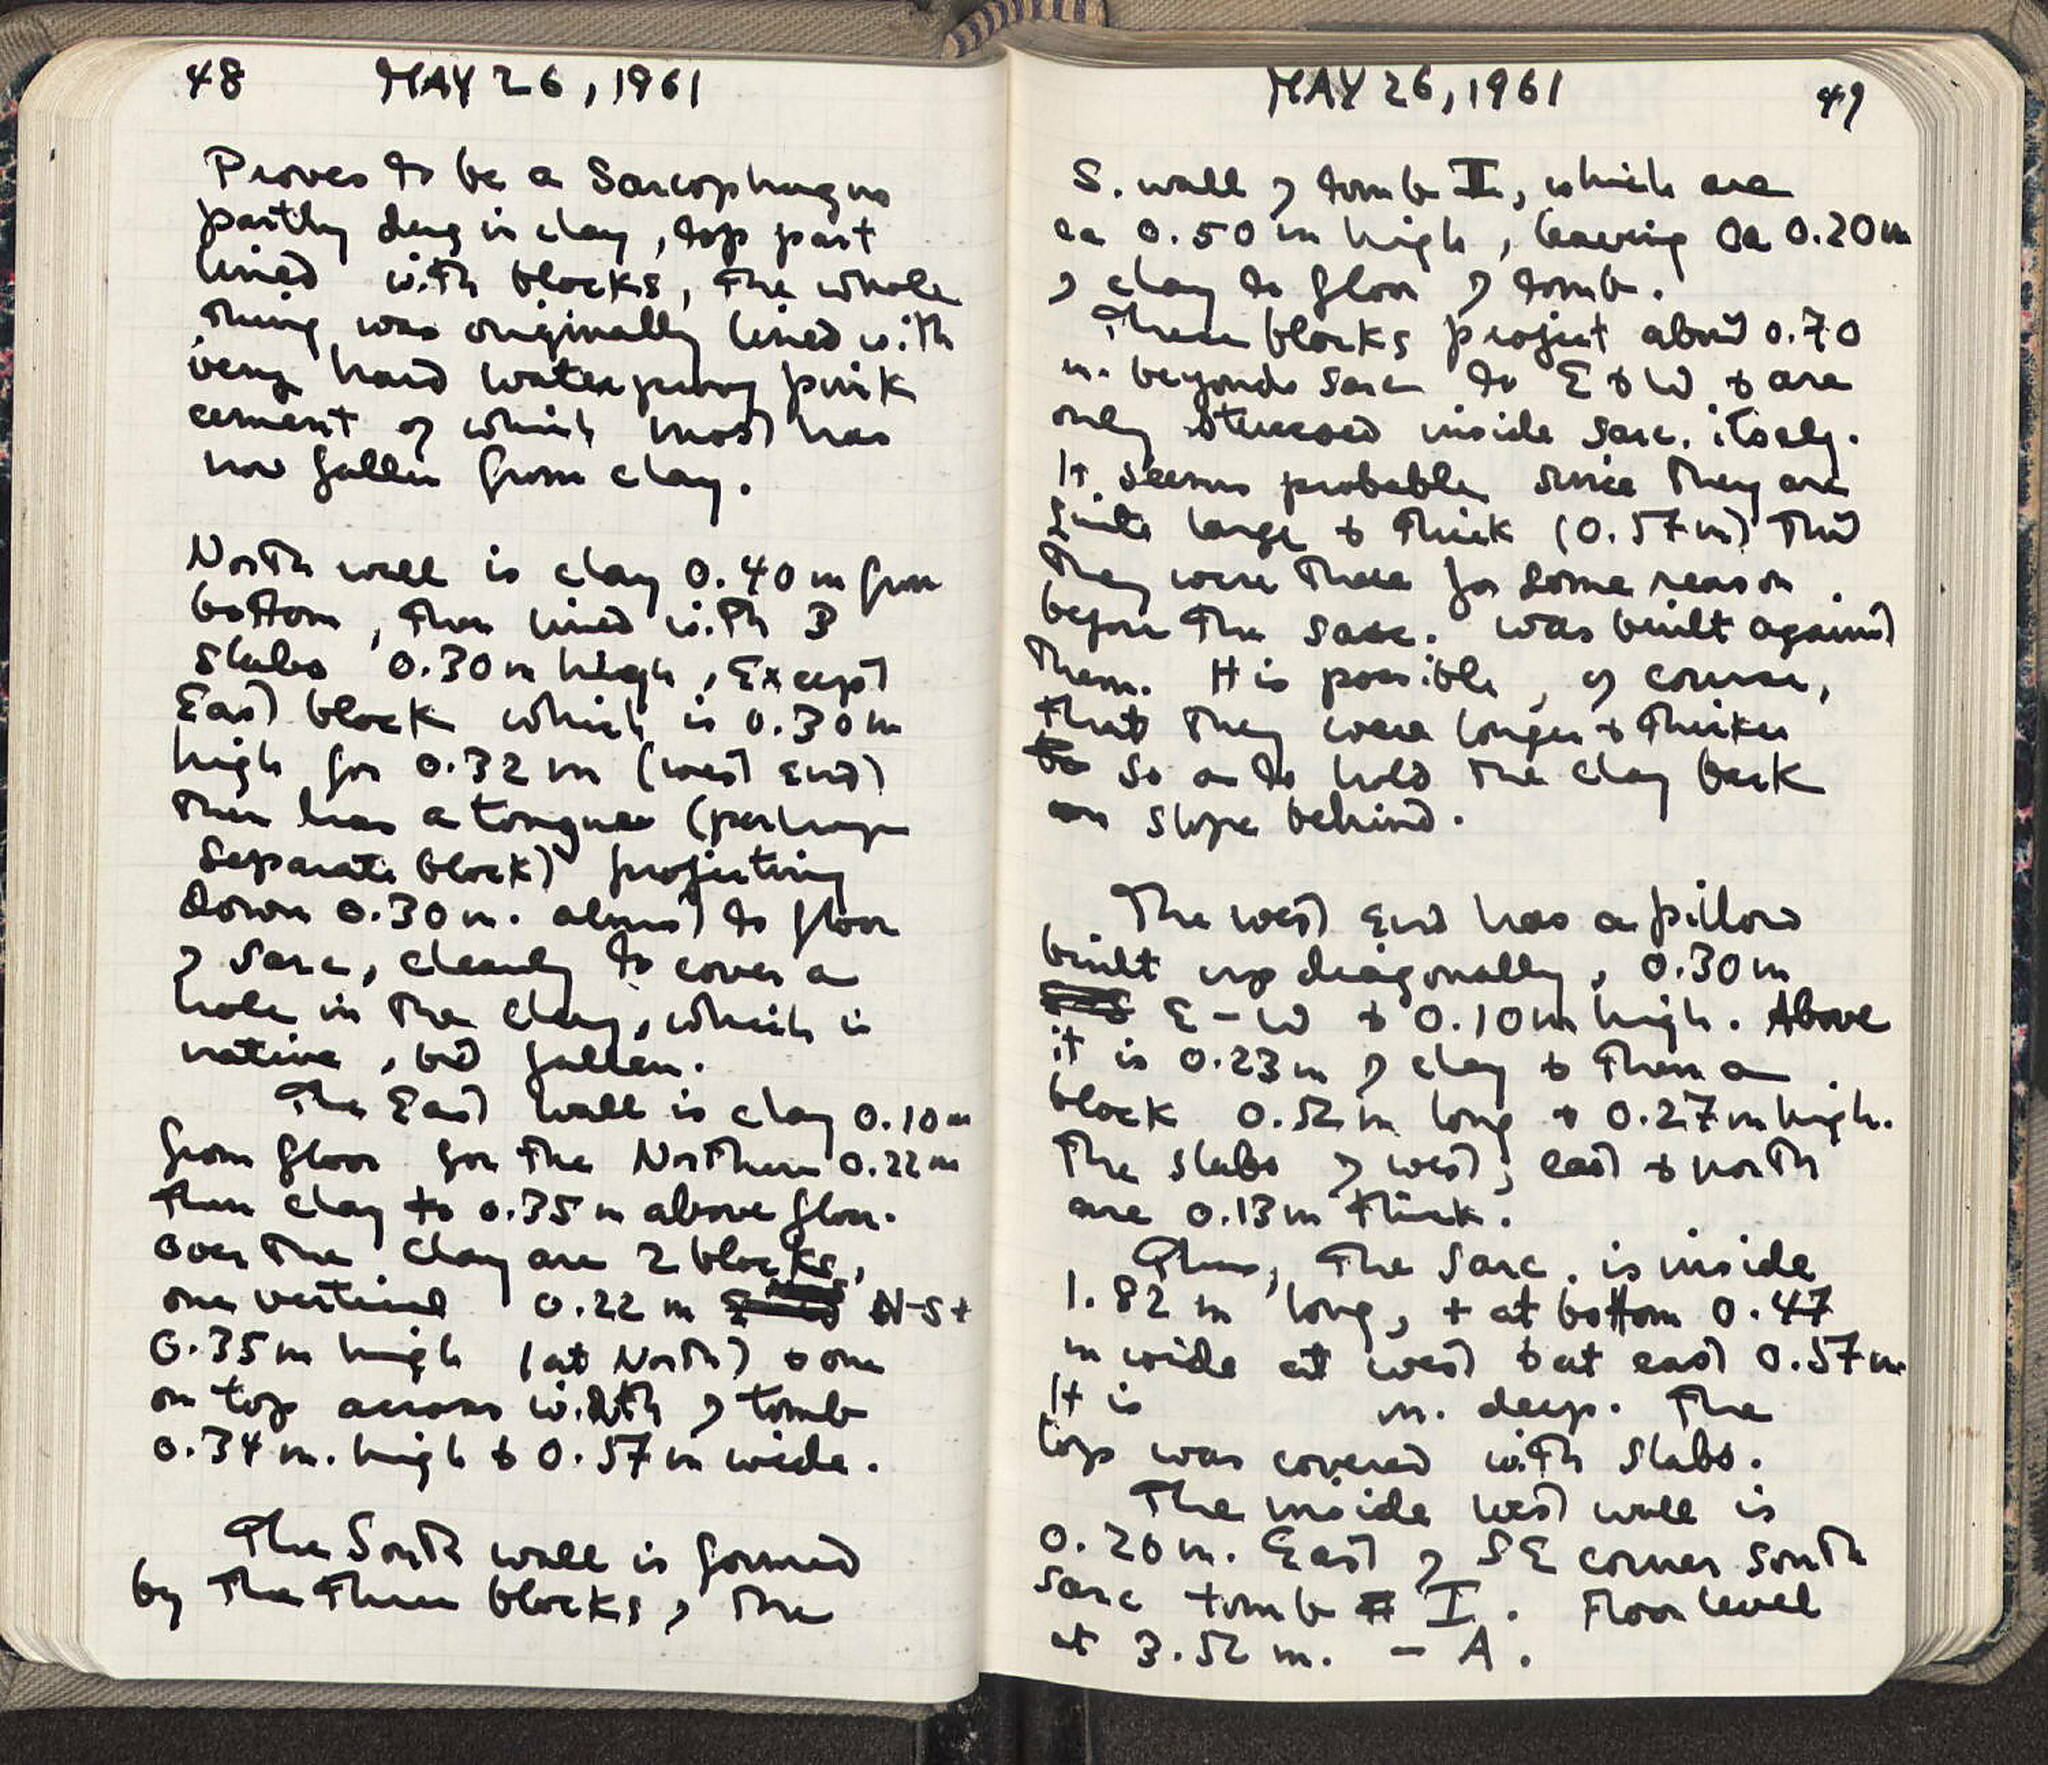 48 MAY 26, 1961
Proves to be a Sarcophagus
partly dug in clay, top part
lined with blocks, the whole
thing was originally lined with
very hard waterproof pink
cement of which most has
now fallen from clay.
North wall is clay 0.40 m from
bottom, then lined with 3
slabs 0.30 m high, Except
East block which is 0.30 m
high for 0.32 m (west end)
then has a tongue (perhaps
separate block) projecting
down 0.30 m. almost to floor
of Sarc, clearly to cover a
hole in the clay, which is
native, but fallen.
The East wall is clay 0.10 m
from floor for the Northern 0.22 m
then clay to 0.35 m above floor.
over the clay are 2 blocks,
one vertical 0.22 m N-S +
0.35 m high (at North) & one
on top across width of tomb
0.34 m. high & 0.57 m wide.
The South wall is formed
by the three blocks of the
MAY 26, 1961 49
S. wall of tomb II, which are
ca 0.50 m high, leaving Ca 0.20 m
of clay to floor of tomb.
These blocks project about 0.70
m. beyond sarc to E & W & are
only stuccoed inside sarc. itself.
It seems probable since they are
quite large & thick (0.57 m) that
they were there for some reason
before the sarc. was built against
them. It is possible, of course,
that they were longer & thicker
so as to hold the clay back
on slope behind.
The west end has a pillow
built up diagonally, 0.30 m
E-W & 0.10 m high. Above
it is 0.23 m of clay & then a
block 0.52 m long & 0.27 m high.
The slabs of west, east & north
are 0.13 m thick.
Thus, the sarc. is inside
1.82 m long, + at bottom 0.47
m wide at west & at east 0.57 m
It is m. deep. The
top was covered with slabs.
The inside west wall is
0.20 m. East of SE corner south
sarc tomb I. Floor level
at 3.52 m. - A.